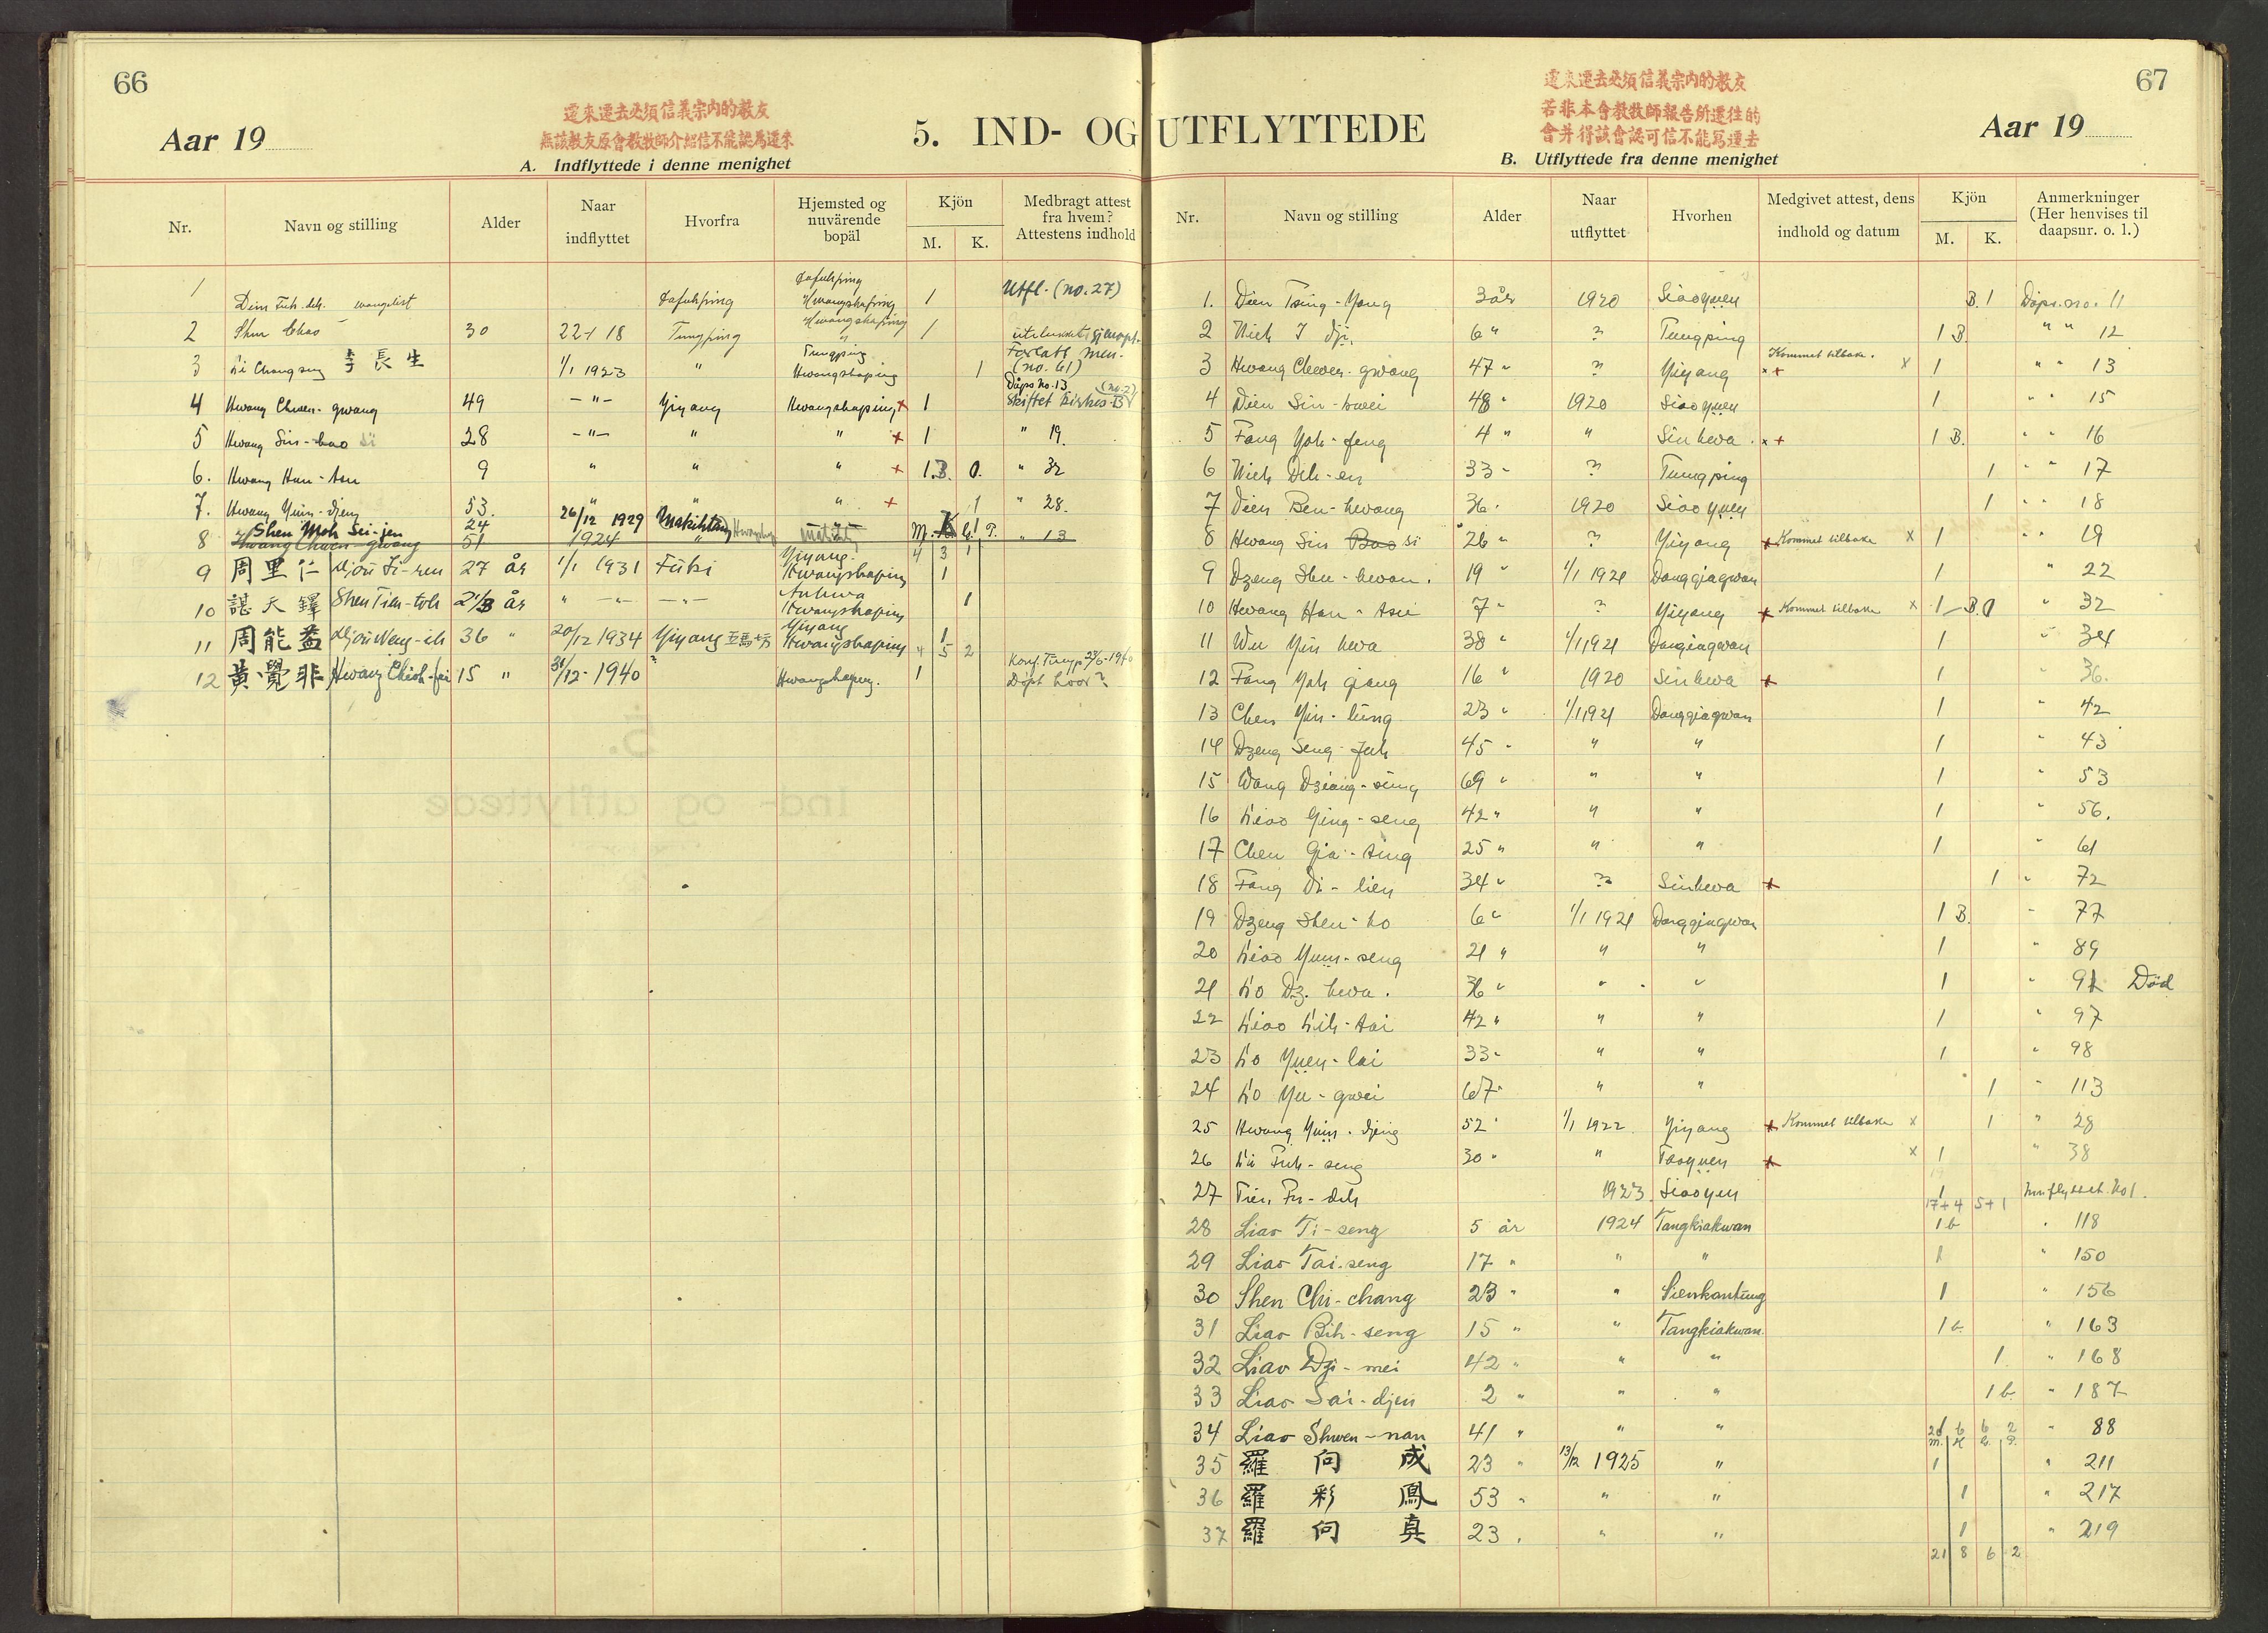 66
Aar 19
遷來遷去必須信義宗內的教友
無該教友原會教牧師介紹信不能認爲遷來
5. IND- OG
A. Indflyttede i denne menighet
Nr. Navn og stilling Alder Naar indflyttet Hvorfra Hjemsted og nuvärende bopäl Kjön M. K. Medbragt attest fra hvem? Attestens indhold
1 Dien Fuh-deh. evangelist Dafuhping Dafuhping Hwangshaping 1 Utfl. (no. 27)
2 Shen Chao 30 22-1 18 Tungping Hwangshaping " 1
3 Li Changseng 李長生 1/1 1923 " Tungping Hwangshaping 1 Forlatt men. (no. 61)
4 Hwang Chuen-gwang 49 -"- Yiyang Hwangshaping + 1 Dåps No. 13 (no. 2) Skiftet
5 Hwang Sin-bao si 28 -"- " " + 1 " 19.
6. Hwang Han-tsu 9 " " " + 1.B. 0. " 32
7. Hwang Yuin-djeng 53. " " " + 1 " 28.
Shen Moh Sei-jen 24 26/12 1929 Makihtang M. K G. P.
8 Hwang Chuen-gwang 51 1924 " " 13
4 3 1
9 周里仁 Djou Li-ren 27 år 1/1 1931 Fuki Yiyang. Hwangshaping 1
10 諶天鐸 Shen Tien-toh 21/3 år " -"- -"- Anhwa Hwangshaping 1
11 周能益 Djou Neng-ih 36 " 20/12 1934 Yiyang 五馬坊 Yiyang Hwangshaping 1
4 5 2
12 黃覺非 Hwang Chioh-fei 15 " 31/12-1940 ? Hwangshaping. 1 Konf. Tungp 23/6-1940 Döpt hvor?
67
遷來遷去必須信義宗內的教友
若非本會教牧師報告所遷往的
會并得該會認可信不能寫遷去
UTFLYTTEDE
Aar 19
B. Utflyttede fra denne menighet
Nr. Navn og stilling Alder Naar utflyttet Hvorhen Medgivet attest, dens indhold og datum Kjön M. K. Anmerkninger (Her henvises til daapsnr. o. l.)
1. Dien Tsing-Yong 3 år 1920 Siaoyuen B. 1 Dåps. no. 11
2 Nieh I dji. 6 " ? Tungping 1 B. " " 12
3 Hwang Chuen-gwang 47 " ? Yiyang + Kommet tilbake. x 1 " " 13
4 Dien Sin-hwei 48 " 1920 Siaoyuen 1 " " 15
5 Fang Yoh-feng 4 " " Sinhwa. + 1 B. " " 16
6 Nieh Deh-en 33 " ? Tungping 1 " " 17
7 Dien Ben-hwang 36 " 1920 Siaoyuen 1 " " 18
8 Hwang Sin Bao si 26 " ? Yiyang + Kommet tilbake x 1 " " 19
9 Dzeng Shu-hwan. 19 " 1/1 1921 Danggiagwan 1 " 22
10 Hwang Han-tsu 7 " ? Yiyang + Kommet tilbake x 1-B. 0 " 32
11 Wu Yin hwa 38 " 1/1 1921 Danggiagwan 1 " 34
12 Fang Yoh giang 16 " 1920 Sinhwa + 1 " 36.
13 Chen Yin-lung 23 " 1/1 1921 Danggiagwan 1 " 42
14 Dzeng Seng-fuh 45 " " " 1 " 43
15 Wang Dziang-sung 69 " " " 1 " 53
16 Liao Ging-seng 42 " " " 1 " 56.
17 Chen Gia-ting 25 " " " 1 " 61
18 Fang Di-lien 34 " ? Sinhwa + 1 " 72
19 Dzeng Shen-ho 6 " 1/1 1921 Danggiagwan 1 B. " 77
20 Liao Yuin-seng 21 " " " 1 " 89
21 Lo Dz. hwa. 36 " " " 1 " 91 Död
22 Liao Lih-tai 42 " " " 1 " 97
23 Lo Yuen-lai 33 " " " 1 " 98
24 Lo Yu-gwei 67 " " " 1 " 113
25 Hwang Yuin-djeng 52 " 1/1 1922 Yiyang + Kommet tilbake x 1 " 28
26 Li Fuh-seng 30 " " Taoyuen + x 1 " 38
27 Tien, Fu-deh 1923. Siaoyuen 1 Innflyttet No 1.
17+4 5+1
28 Liao Ti-seng 5 år 1924 Tangkiakwan 1 b " 118
29 Liao Tai-seng 17 " " " 1 " 150
30 Shen Chi-chang 23 " " Sienkantung 1 " 156
31 Liao Bih-seng 15 " " Tangkiakwan. 1 b. " 163
32 Liao Dzi-mei 42 " " " 1 " 168
33 Liao Sai-djen 2 " " " 1 b. " 187
34 Liao Shwen-nan 41 " " " " 88
20 6 6 2
M. K G. P.
35 羅向成 23 " 13/12 1925 " 1 " 211
36 羅彩鳳 53 " " " 1 " 217
37 羅向真 23 " " " 1 " 219
21 8 6 2